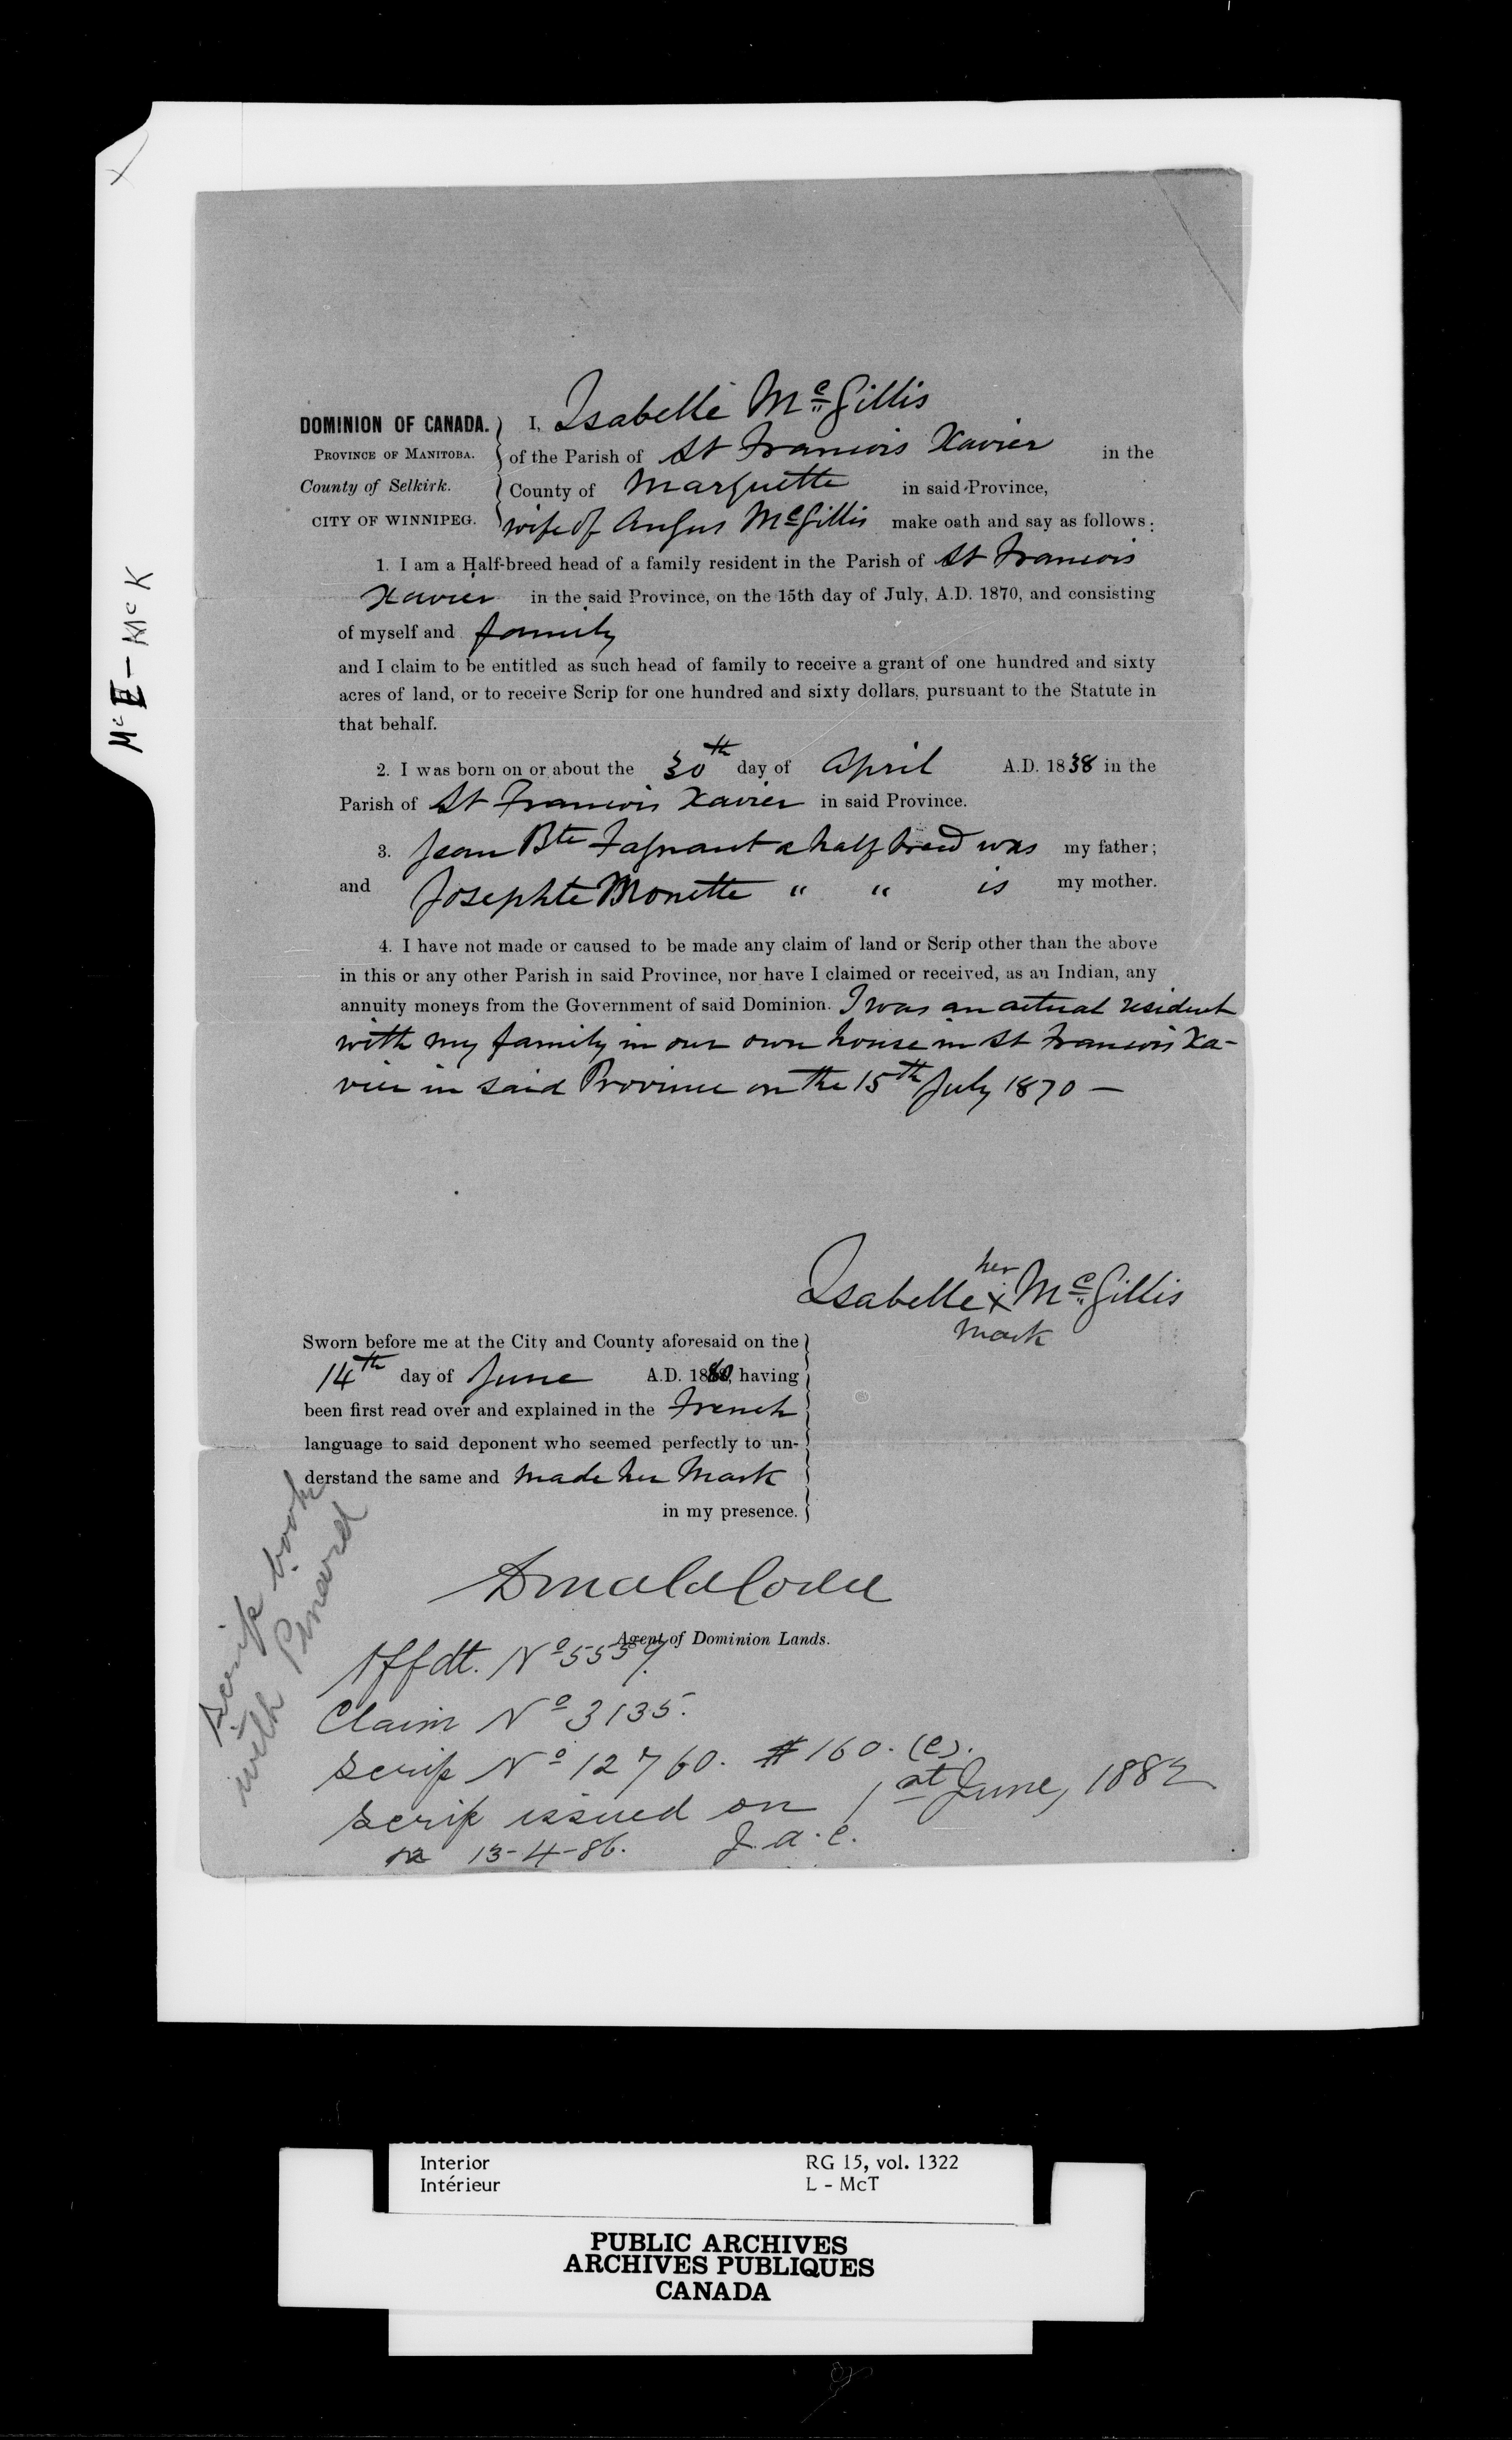 X
McE - McK
I, Isabelle Mc Gillis
DOMINION OF CANADA.
PROVINCE OF MANITOBA.
County of Selkirk.
CITY OF WINNIPEG.
of the Parish of St Francois Xavier in the
County of Marquette in said Province,
wife of Angus McGillis make oath and say as follows:
1. I am a Half-breed head of a family resident in the Parish of St Francois
Xavier in the said Province, on the 15th day of July, A.D. 1870, and consisting
of myself and family
and I claim to be entitled as such head of family to receive a grant of one hundred and sixty
acres of land, or to receive Scrip for one hundred and sixty dollars, pursuant to the Statute in
that behalf.
2. I was born on or about the 30th day of April A.D. 1838 in the
Parish of St Francois Xavier in said Province.
3. Jean Bte Fagnant a half breed was my father;
and Josephte Monette " " is my mother.
4. I have not made or caused to be made any claim of land or Scrip other than the above
in this or any other Parish in said Province, nor have I claimed or received, as an Indian, any
annuity moneys from the Government of said Dominion. I was an actual resident
with my family in our own house in St Francois Xa-
vier in said Province on the 15th July 1870 —
her
Isabelle X Mc Gillis
mark
Sworn before me at the City and County aforesaid on the
14th day of June A.D. 1880, having
been first read over and explained in the French
language to said deponent who seemed perfectly to un-
derstand the same and made her mark
in my presence.
Agent of Dominion Lands.
scrip book
with Pinard
Affdt. No 5559.
Claim No 3135.
Scrip No 12760. $160. (e).
Scrip issued on 1st June, 1882
13-4-86. J.a.c.
Interior RG 15, vol. 1322
Intérieur L - McT
PUBLIC ARCHIVES
ARCHIVES PUBLIQUES
CANADA